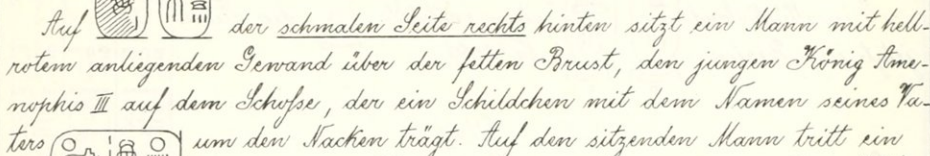 Auf der schmalen Seite rechts hinten sitzt ein Mann mit hell-
rotem anliegenden Gewand über der fetten Brust, den jungen König Ame-
nophis III auf dem Schoße, der ein Schildchen mit dem Namen seines Va-
ters um den Nacken trägt. Auf den sitzenden Mann tritt ein